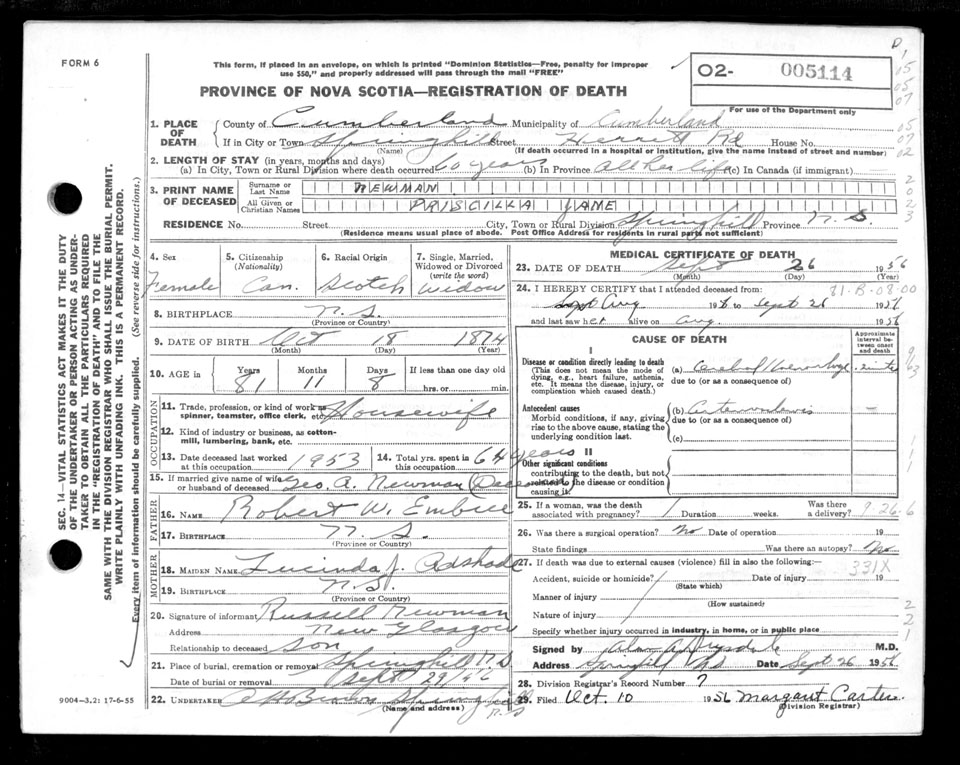 FORM 6
This form, if placed in an envelope, on which is printed "Dominion Statistics—Free, penalty for improper
use $50," and properly addressed will pass through the mail "FREE"
02- 005114
For use of the Department only
PROVINCE OF NOVA SCOTIA—REGISTRATION OF DEATH
1. PLACE OF DEATH { County of Cumberland Municipality of Cumberland
If in City or Town Springhill Street Rd House No.
(Name) (If death occurred in a hospital or institution, give the name instead of street and number)
2. LENGTH OF STAY (in years, months and days)
(a) In City, Town or Rural Division where death occurred 60 years (b) In Province all her life (c) In Canada (if immigrant) —
3. PRINT NAME OF DECEASED { Surname or Last Name NEWMAN
All Given or Christian Names PRISCILLA JANE
RESIDENCE No. Street City, Town or Rural Division Springhill Province N.S.
(Residence means usual place of abode. Post Office Address for residents in rural parts not sufficient)
4. Sex Female
5. Citizenship (Nationality) Can.
6. Racial Origin Scotch
7. Single, Married, Widowed or Divorced (write the word) Widow
8. BIRTHPLACE N.S.
(Province or Country)
9. DATE OF BIRTH Oct 18 1874
(Month) (Day) (Year)
10. AGE in Years 81 Months 11 Days 8 If less than one day old hrs. or min.
OCCUPATION
11. Trade, profession, or kind of work as spinner, teamster, office clerk, etc. Housewife
12. Kind of industry or business, as cotton-mill, lumbering, bank, etc.
13. Date deceased last worked at this occupation 1953
14. Total yrs. spent in this occupation 64 years
15. If married give name of wife or husband of deceased Geo. A. Newman (Deceased)
FATHER
16. NAME Robert W. Embree
17. BIRTHPLACE N.S.
(Province or Country)
MOTHER
18. MAIDEN NAME Lucinda J. Adshade
19. BIRTHPLACE N.S.
(Province or Country)
20. Signature of informant Russell Newman
Address New Glasgow
Relationship to deceased Son
21. Place of burial, cremation or removal Springhill N.S.
Date of burial or removal Sept 29/56
22. UNDERTAKER Springhill N.S.
(Name and address)
MEDICAL CERTIFICATE OF DEATH
23. DATE OF DEATH Sept 26 1956
(Month) (Day) (Year)
24. I HEREBY CERTIFY that I attended deceased from:
Aug 195 to Sept 26 1956
and last saw her alive on Aug. 1956
81-B-08-00
CAUSE OF DEATH
Approximate interval between onset and death
I
Disease or condition directly leading to death
(This does not mean the mode of dying, e.g., heart failure, asthenia, etc. It means the disease, injury, or complication which caused death.)
(a) Cerebral Hemorrhage
due to (or as a consequence of)
Antecedent causes
Morbid conditions, if any, giving rise to the above cause, stating the underlying condition last.
(b) —
due to (or as a consequence of)
(c)
II
Other significant conditions
contributing to the death, but not related to the disease or condition causing it.
25. If a woman, was the death associated with pregnancy? Duration weeks. Was there a delivery?
9-26-6
26. Was there a surgical operation? No Date of operation 19
State findings Was there an autopsy? No
27. If death was due to external causes (violence) fill in also the following:—
331X
Accident, suicide or homicide? Date of injury 19
(State which)
Manner of injury
(How sustained)
Nature of injury
Specify whether injury occurred in industry, in home, or in public place
Signed by M.D.
Address Springhill NS Date Sept 26 1956
28. Division Registrar's Record Number 7
29. Filed Oct. 10 1956 Margaret Carter
(Division Registrar)
SEC. 14—VITAL STATISTICS ACT MAKES IT THE DUTY
OF THE UNDERTAKER OR PERSON ACTING AS UNDER-
TAKER TO OBTAIN ALL THE PARTICULARS REQUIRED
IN THE "REGISTRATION OF DEATH" AND TO FILE THE
SAME WITH THE DIVISION REGISTRAR WHO SHALL ISSUE THE BURIAL PERMIT.
WRITE PLAINLY WITH UNFADING INK. THIS IS A PERMANENT RECORD.
Every item of information should be carefully supplied. (See reverse side for instructions.)
9004-3.2: 17-6-55